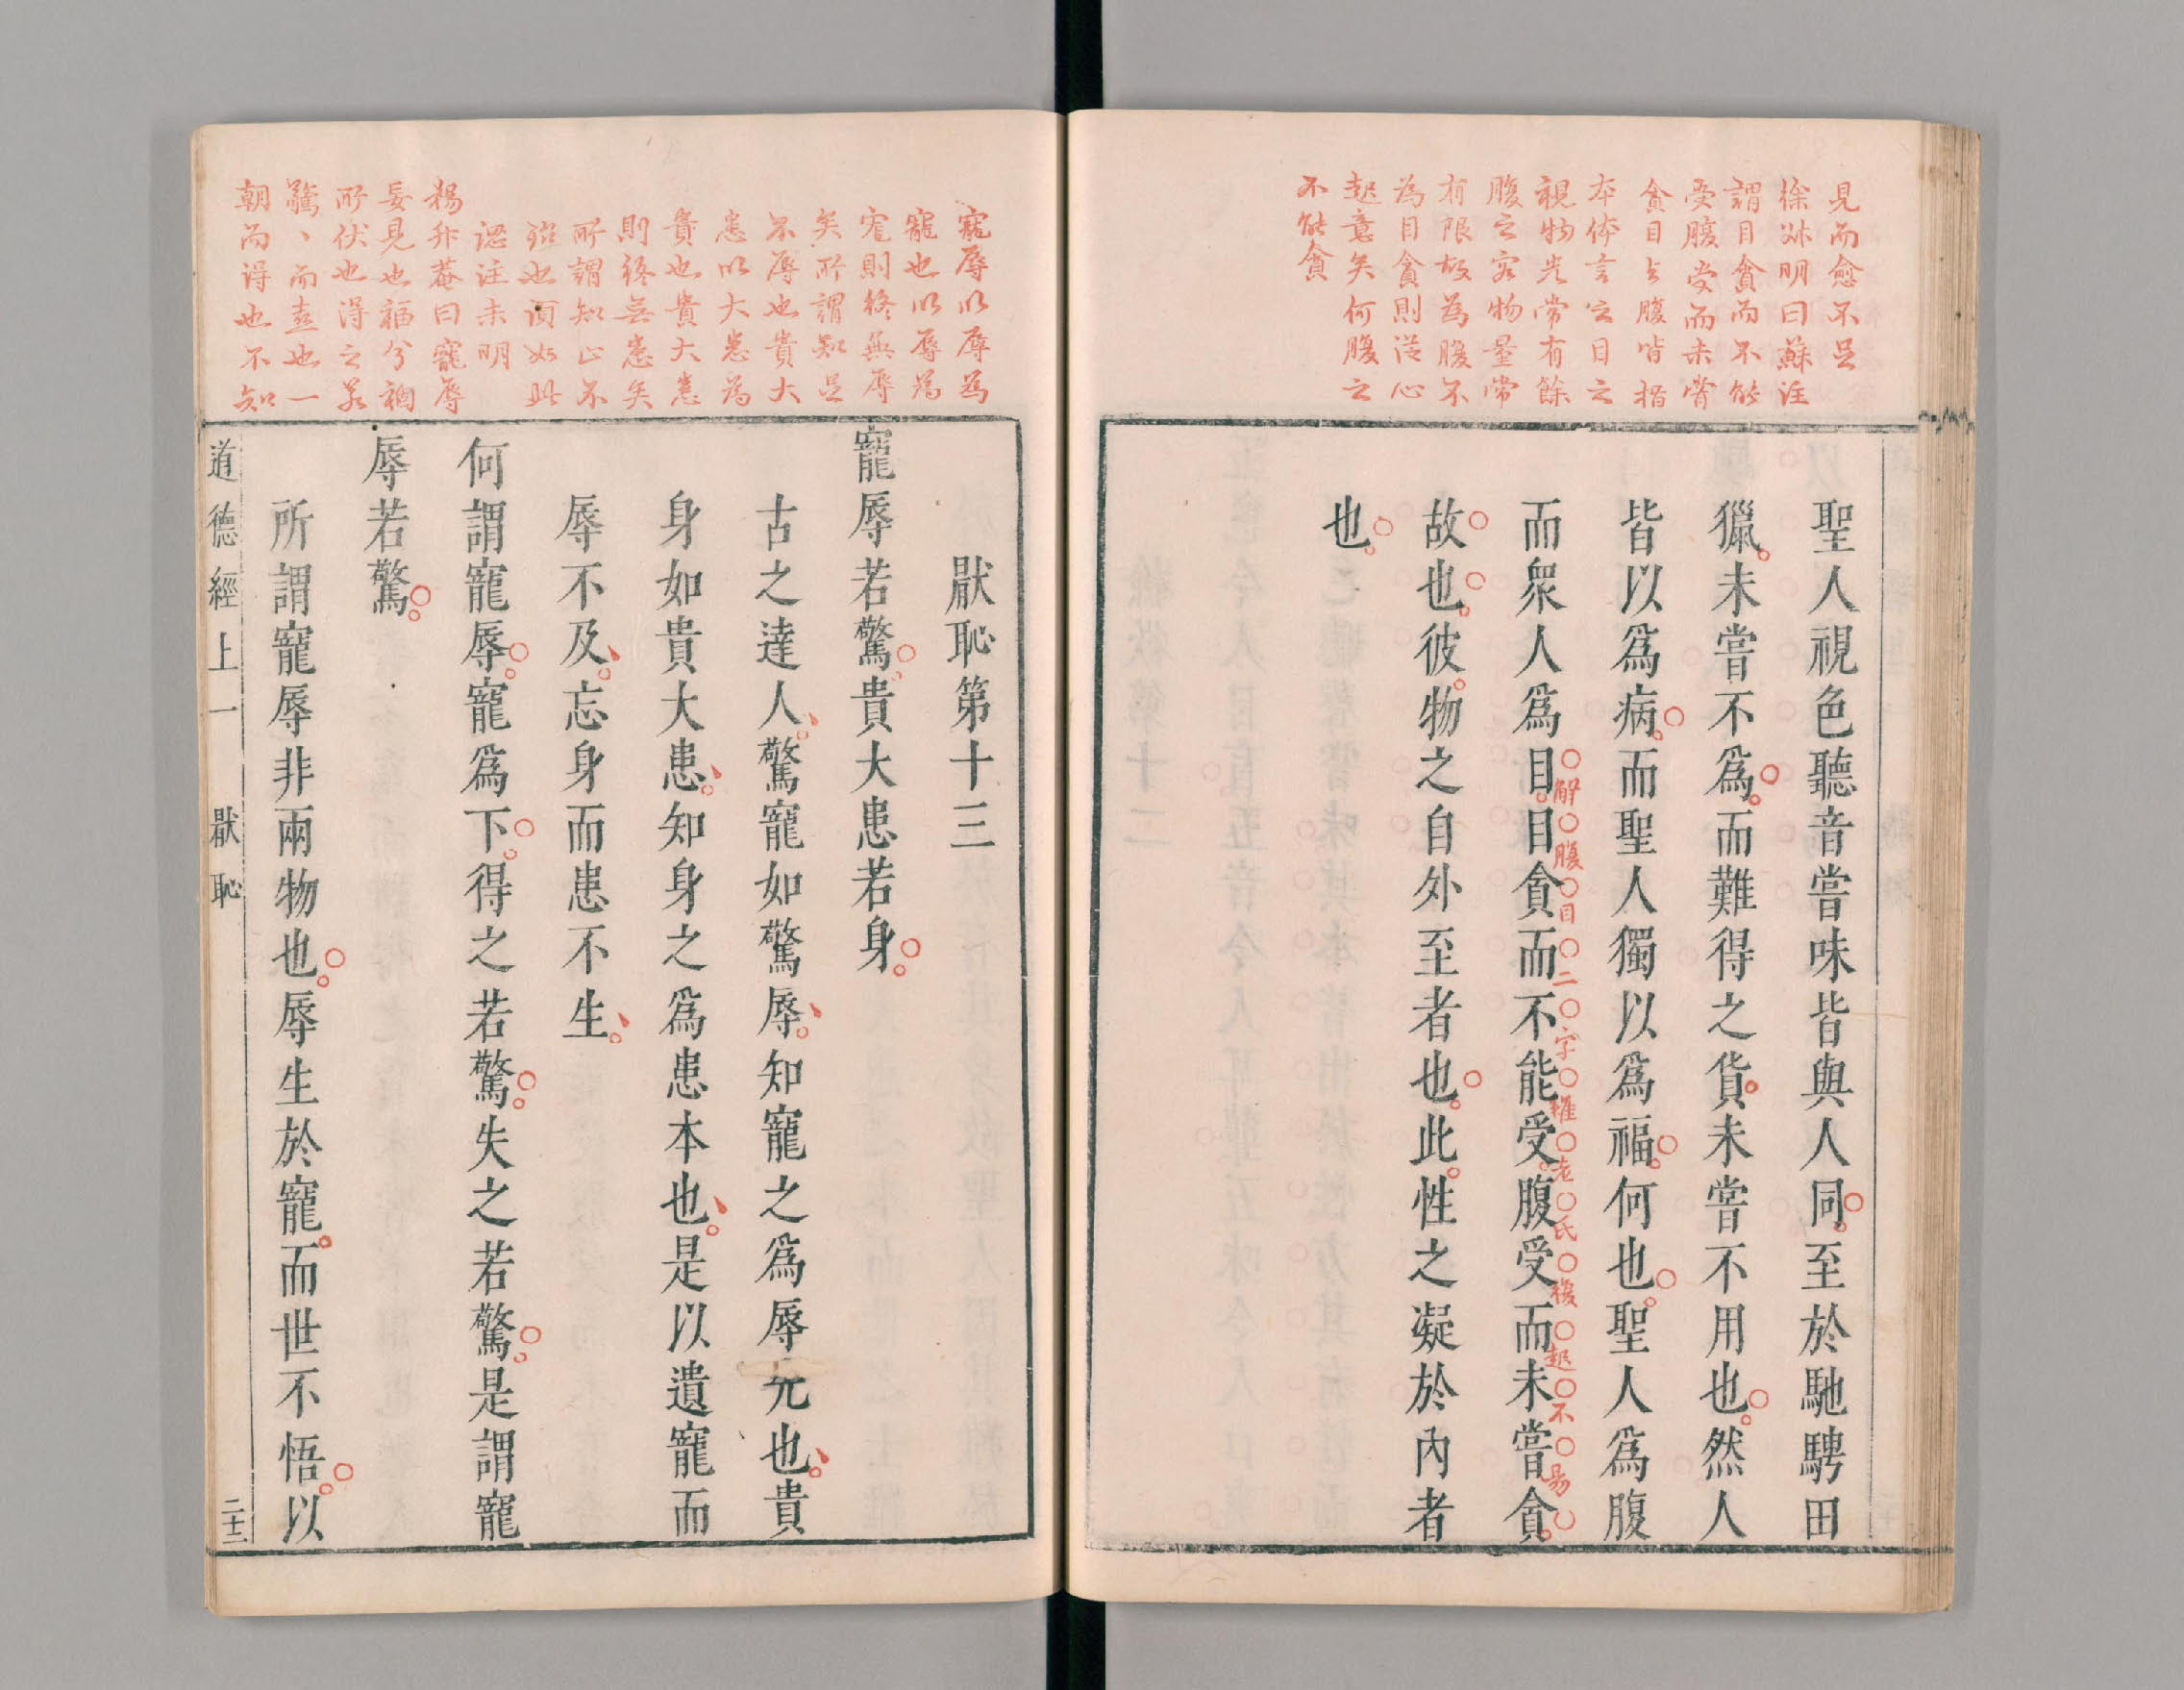 見而愈不足
徐姊明曰蘇注
謂目貪而不能
受腹受而未嘗
貪目與腹皆指
本体言之目之
視物光常有餘
腹之容物量常
有限故為腹不
為目貪則從心
起意矣何腹之
不能貪
聖人視色聽音嘗味皆與人同至於馳騁田
獵未嘗不爲而難得之貨未嘗不用也然人
皆以爲病而聖人獨以爲福何也聖人爲腹
而衆人爲目目貪而不能受腹受而未嘗貪
解腹目二字雖老氏復起不易
故也彼物之自外至者也此性之凝於內者
也
寵辱以辱為
寵也以辱為
寵則終無辱
矣所謂知足
不辱也貴大
患以大患為
貴也貴大患
則終無患矣
所謂知止不
殆也頂如此
認注未明
楊升菴曰寵辱
妄見也福兮禍
所伏也得之若
驚丶而喜也一
朝而得也不知
猒恥第十三
寵辱若驚貴大患若身
古之達人驚寵如驚辱知寵之爲辱先也貴
身如貴大患知身之爲患本也是以遺寵而
辱不及忘身而患不生
何謂寵辱寵爲下得之若驚失之若驚是謂寵
辱若驚
所謂寵辱非兩物也辱生於寵而世不悟以
道德經上一 猒恥 二十三